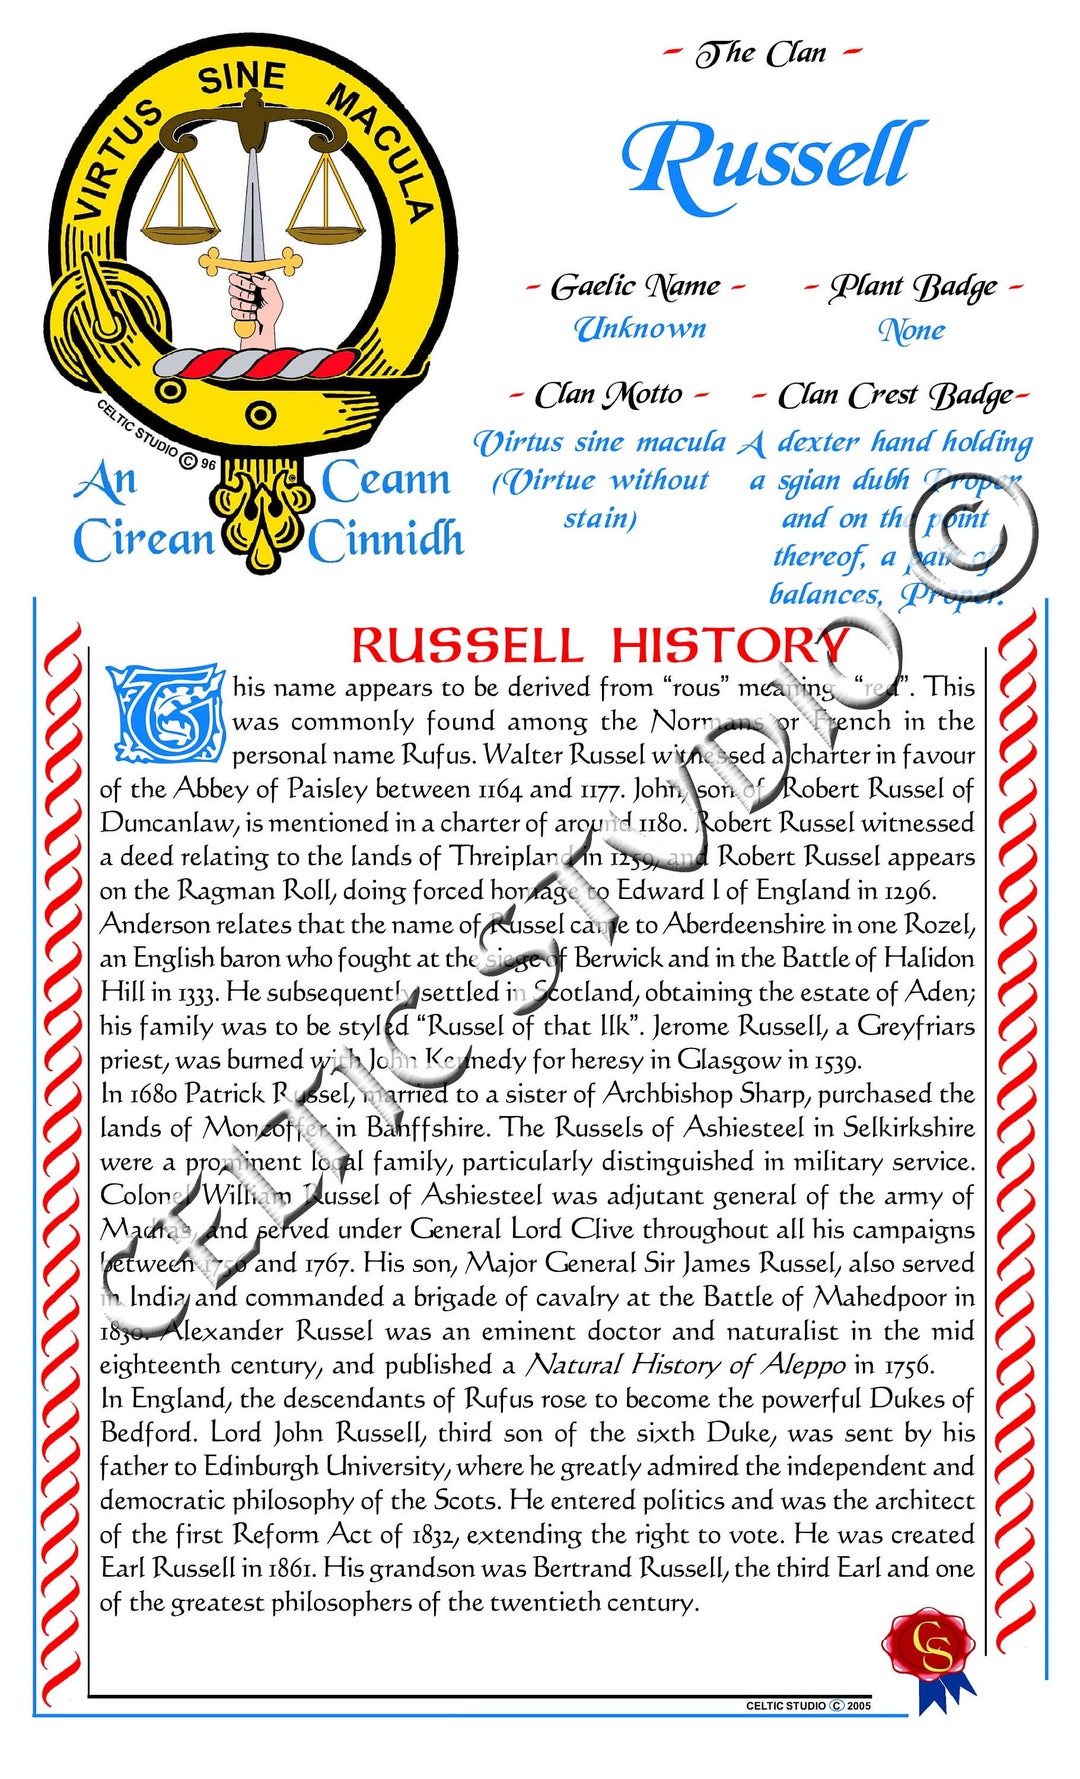 VIRTUS SINE MACULA
CELTIC STUDIO © 96
An Ceann
Cirean Cinnidh
- The Clan -
Russell
- Gaelic Name -
Unknown
- Plant Badge -
None
- Clan Motto -
Virtus sine macula
(Virtue without
stain)
- Clan Crest Badge-
A dexter hand holding
a sgian dubh Proper,
and on the point
thereof, a pair of
balances, Proper.
RUSSELL HISTORY
This name appears to be derived from “rous” meaning “red”. This
was commonly found among the Normans or French in the
personal name Rufus. Walter Russel witnessed a charter in favour
of the Abbey of Paisley between 1164 and 1177. John, son of Robert Russel of
Duncanlaw, is mentioned in a charter of around 1180. Robert Russel witnessed
a deed relating to the lands of Threipland in 1259, and Robert Russel appears
on the Ragman Roll, doing forced homage to Edward I of England in 1296.
Anderson relates that the name of Russel came to Aberdeenshire in one Rozel,
an English baron who fought at the siege of Berwick and in the Battle of Halidon
Hill in 1333. He subsequently settled in Scotland, obtaining the estate of Aden;
his family was to be styled “Russel of that Ilk”. Jerome Russell, a Greyfriars
priest, was burned with John Kennedy for heresy in Glasgow in 1539.
In 1680 Patrick Russel, married to a sister of Archbishop Sharp, purchased the
lands of Moncoffer in Banffshire. The Russels of Ashiesteel in Selkirkshire
were a prominent local family, particularly distinguished in military service.
Colonel William Russel of Ashiesteel was adjutant general of the army of
Madras, and served under General Lord Clive throughout all his campaigns
between 1756 and 1767. His son, Major General Sir James Russel, also served
in India and commanded a brigade of cavalry at the Battle of Mahedpoor in
1830. Alexander Russel was an eminent doctor and naturalist in the mid
eighteenth century, and published a Natural History of Aleppo in 1756.
In England, the descendants of Rufus rose to become the powerful Dukes of
Bedford. Lord John Russell, third son of the sixth Duke, was sent by his
father to Edinburgh University, where he greatly admired the independent and
democratic philosophy of the Scots. He entered politics and was the architect
of the first Reform Act of 1832, extending the right to vote. He was created
Earl Russell in 1861. His grandson was Bertrand Russell, the third Earl and one
of the greatest philosophers of the twentieth century.
CELTIC STVDIO ©
CS
CELTIC STUDIO © 2005